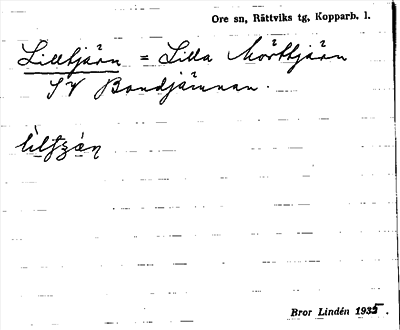 Ore sn, Rättviks tg, Kopparb. l.
Lilltjärn = Lilla Mörttjärn
SV Bondjämnan.
Bror Lindén 1935.